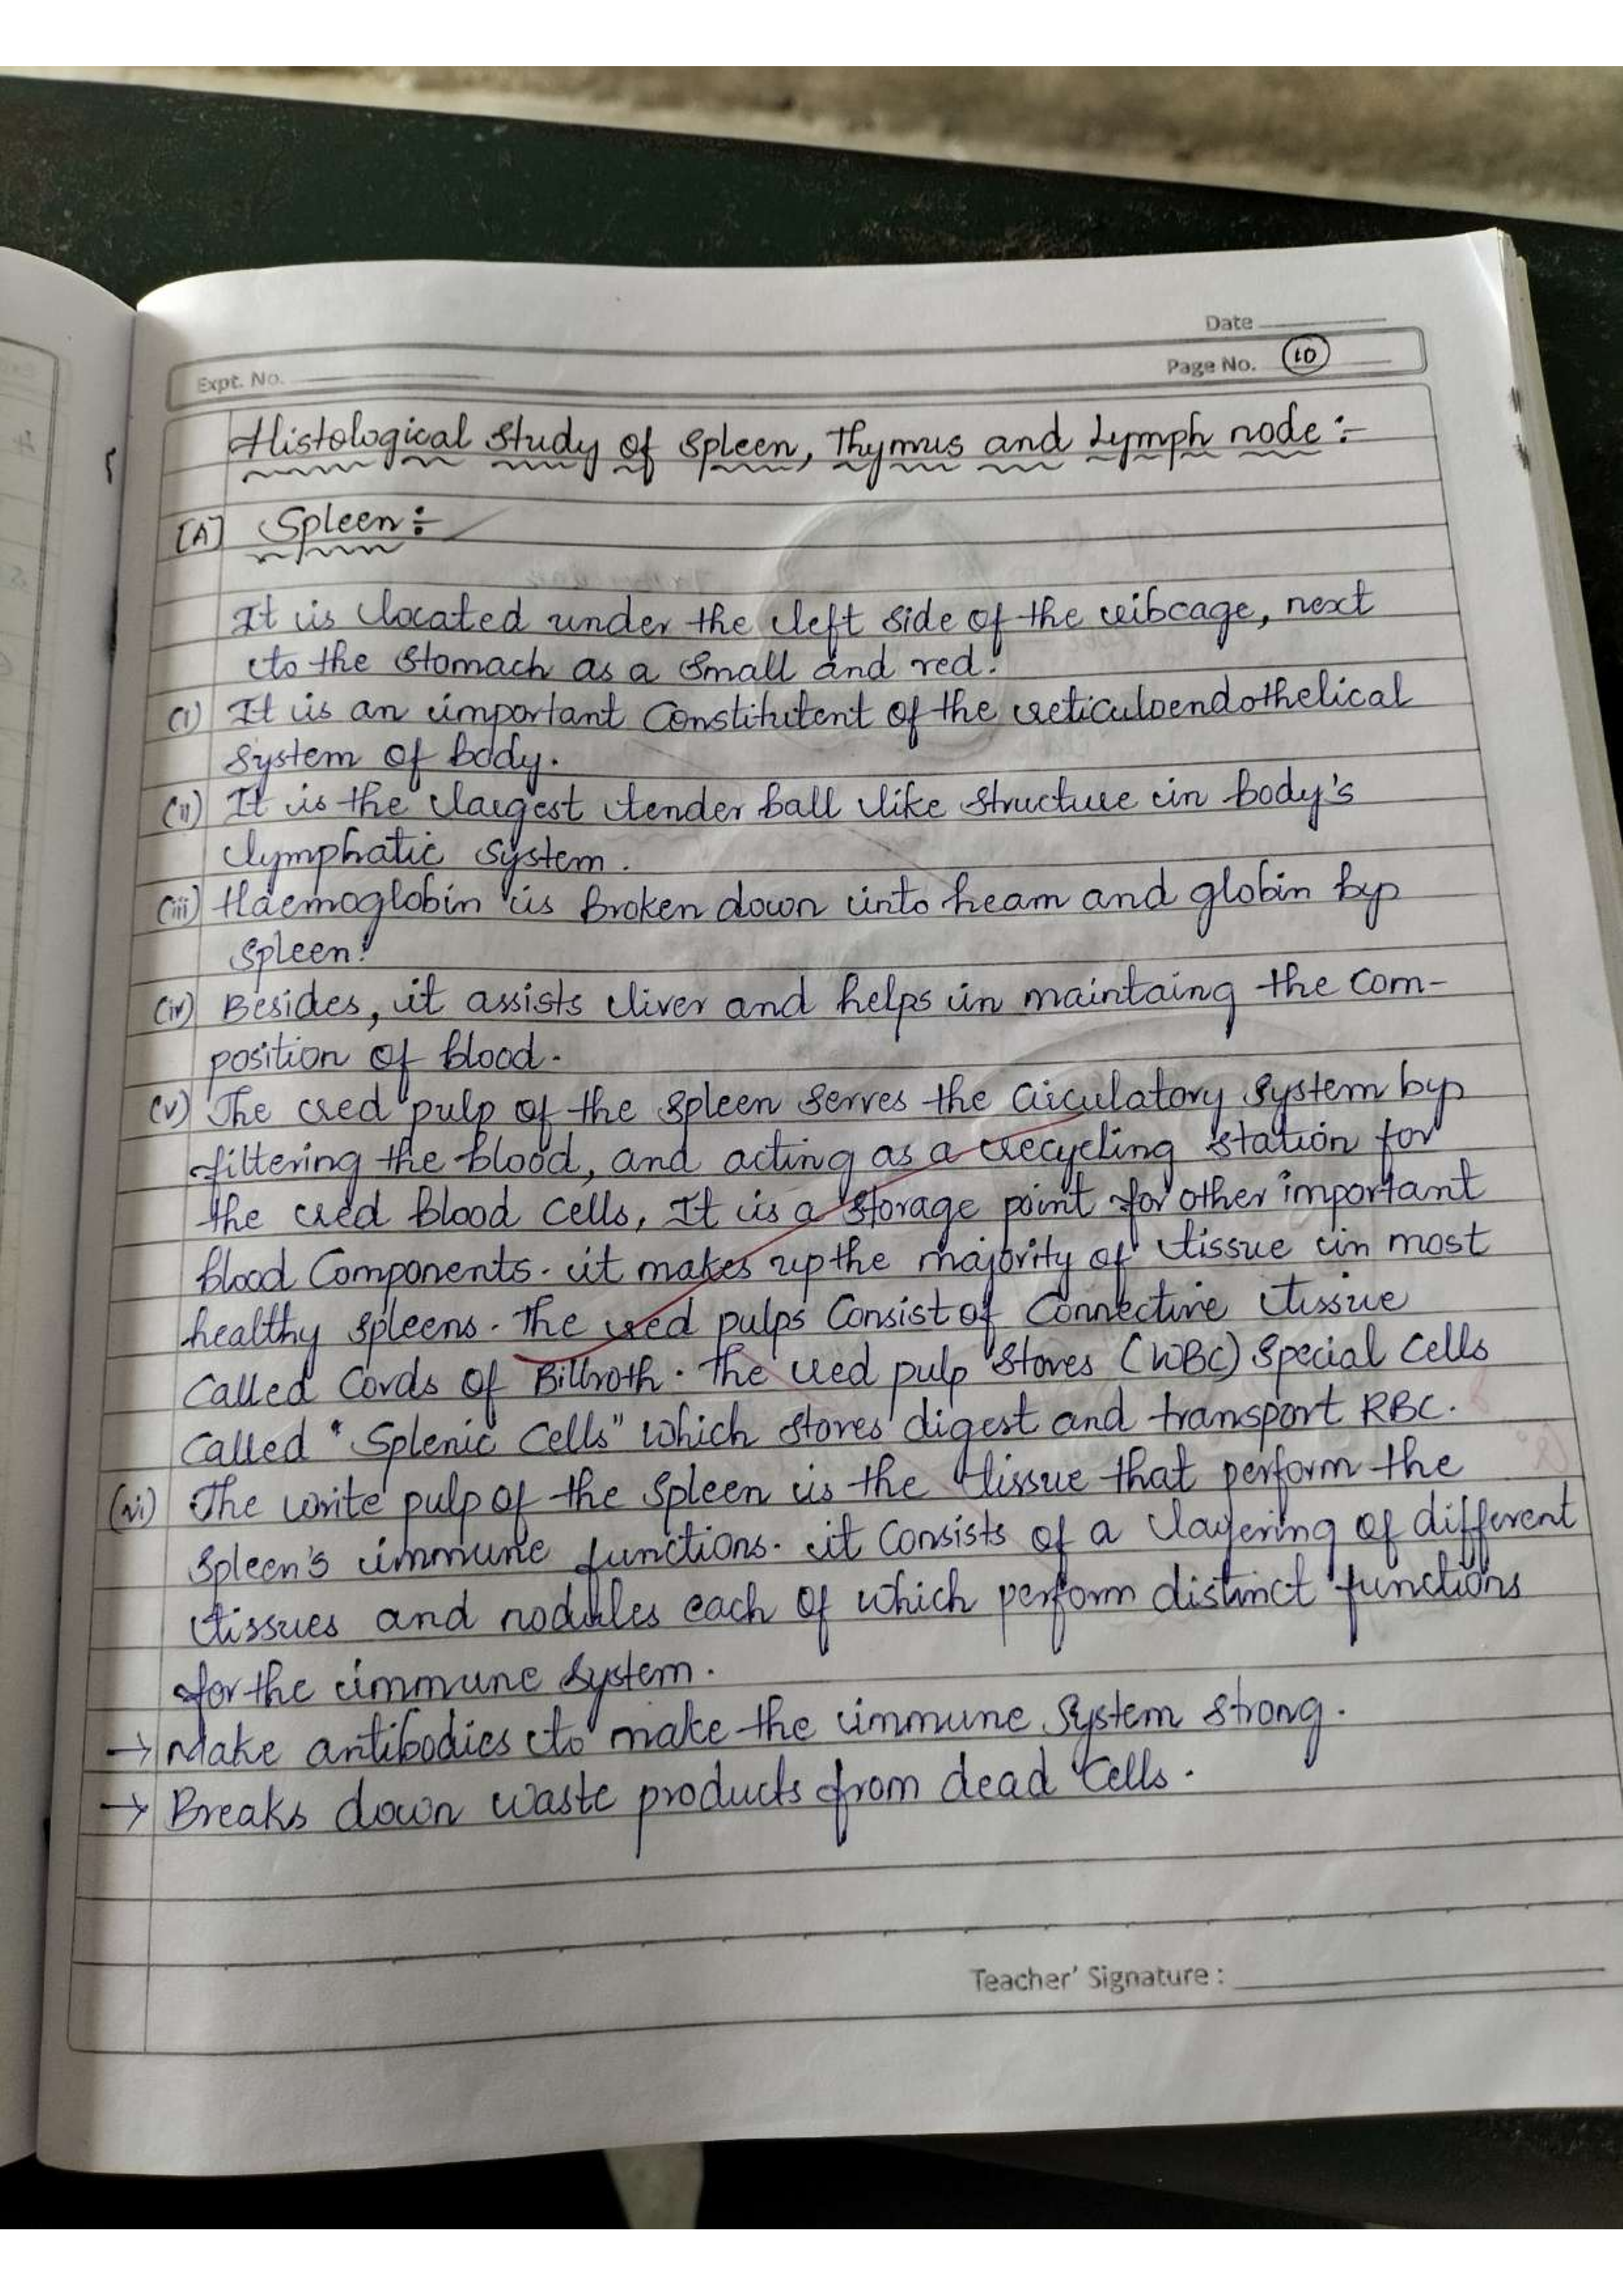 Date
Expt. No.
Page No. 10
Histological Study of Spleen, Thymus and Lymph node :-
[A] Spleen :-
It is located under the left side of the ribcage, next
to the stomach as a small and red.
(i) It is an important Constitutent of the reticuloendothelical
System of body.
(ii) It is the largest tender ball like structure in body's
lymphatic system.
(iii) Haemoglobin is broken down into heam and globin by
spleen.
(iv) Besides, it assists liver and helps in maintaing the com-
position of blood.
(v) The red pulp of the spleen serves the circulatory system by
filtering the blood, and acting as a recycling station for
the red blood cells, It is a storage point for other important
blood Components. it makes up the majority of tissue in most
healthy spleens. The red pulps Consist of Connective tissue
Called Cords of Billroth. The red pulp stores (WBC) Special Cells
Called "Splenic Cells" which stores digest and transport RBC.
(vi) The write pulp of the spleen is the tissue that perform the
spleen's immune functions. it Consists of a layering of different
tissues and nodules each of which perform distinct functions
for the immune system.
→ Make antibodies to make the immune system strong.
→ Breaks down waste products from dead cells.
Teacher' Signature :